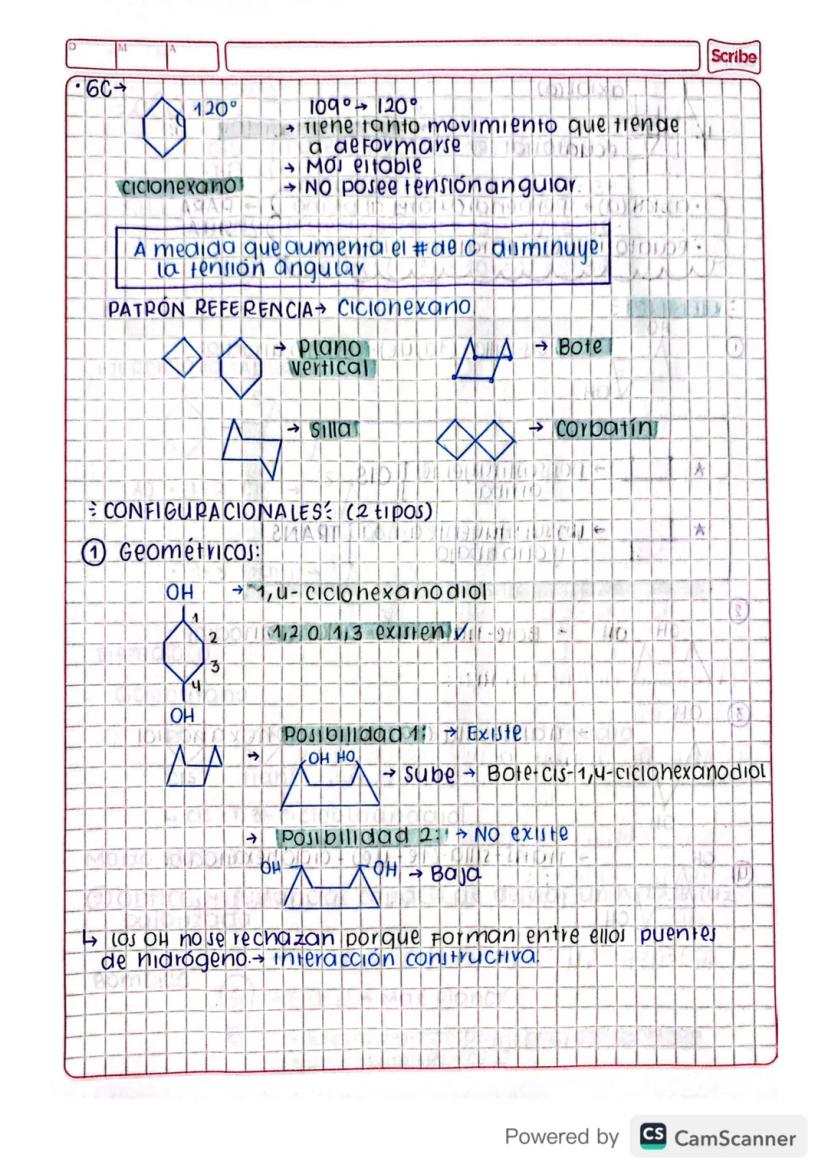 D M A
Scribe
· 6C→
120°
109° → 120°
→ Tiene tanto movimiento que tiende
a deformarse
→ Más estable
ciclohexano
→ No posee tensión angular.
A medida que aumenta el # de C disminuye
la tensión angular
PATRÓN REFERENCIA → Ciclohexano.
→ Plano
vertical
→ Bote
→ Silla
→ Corbatín
CONFIGURACIONALES: (2 tipos)
① Geométricos:
OH → 1,4-ciclohexanodiol
1
2 1,2 o 1,3 existen ✓
3
4
OH
Posibilidad 1: → Existe
→ OH HO
→ Sube → Bote-cis-1,4-ciclohexanodiol
→ Posibilidad 2: → NO existe
OH OH → Baja
↳ los OH no se rechazan porque forman entre ellos puentes
de hidrógeno. → interacción constructiva.
Powered by CS CamScanner